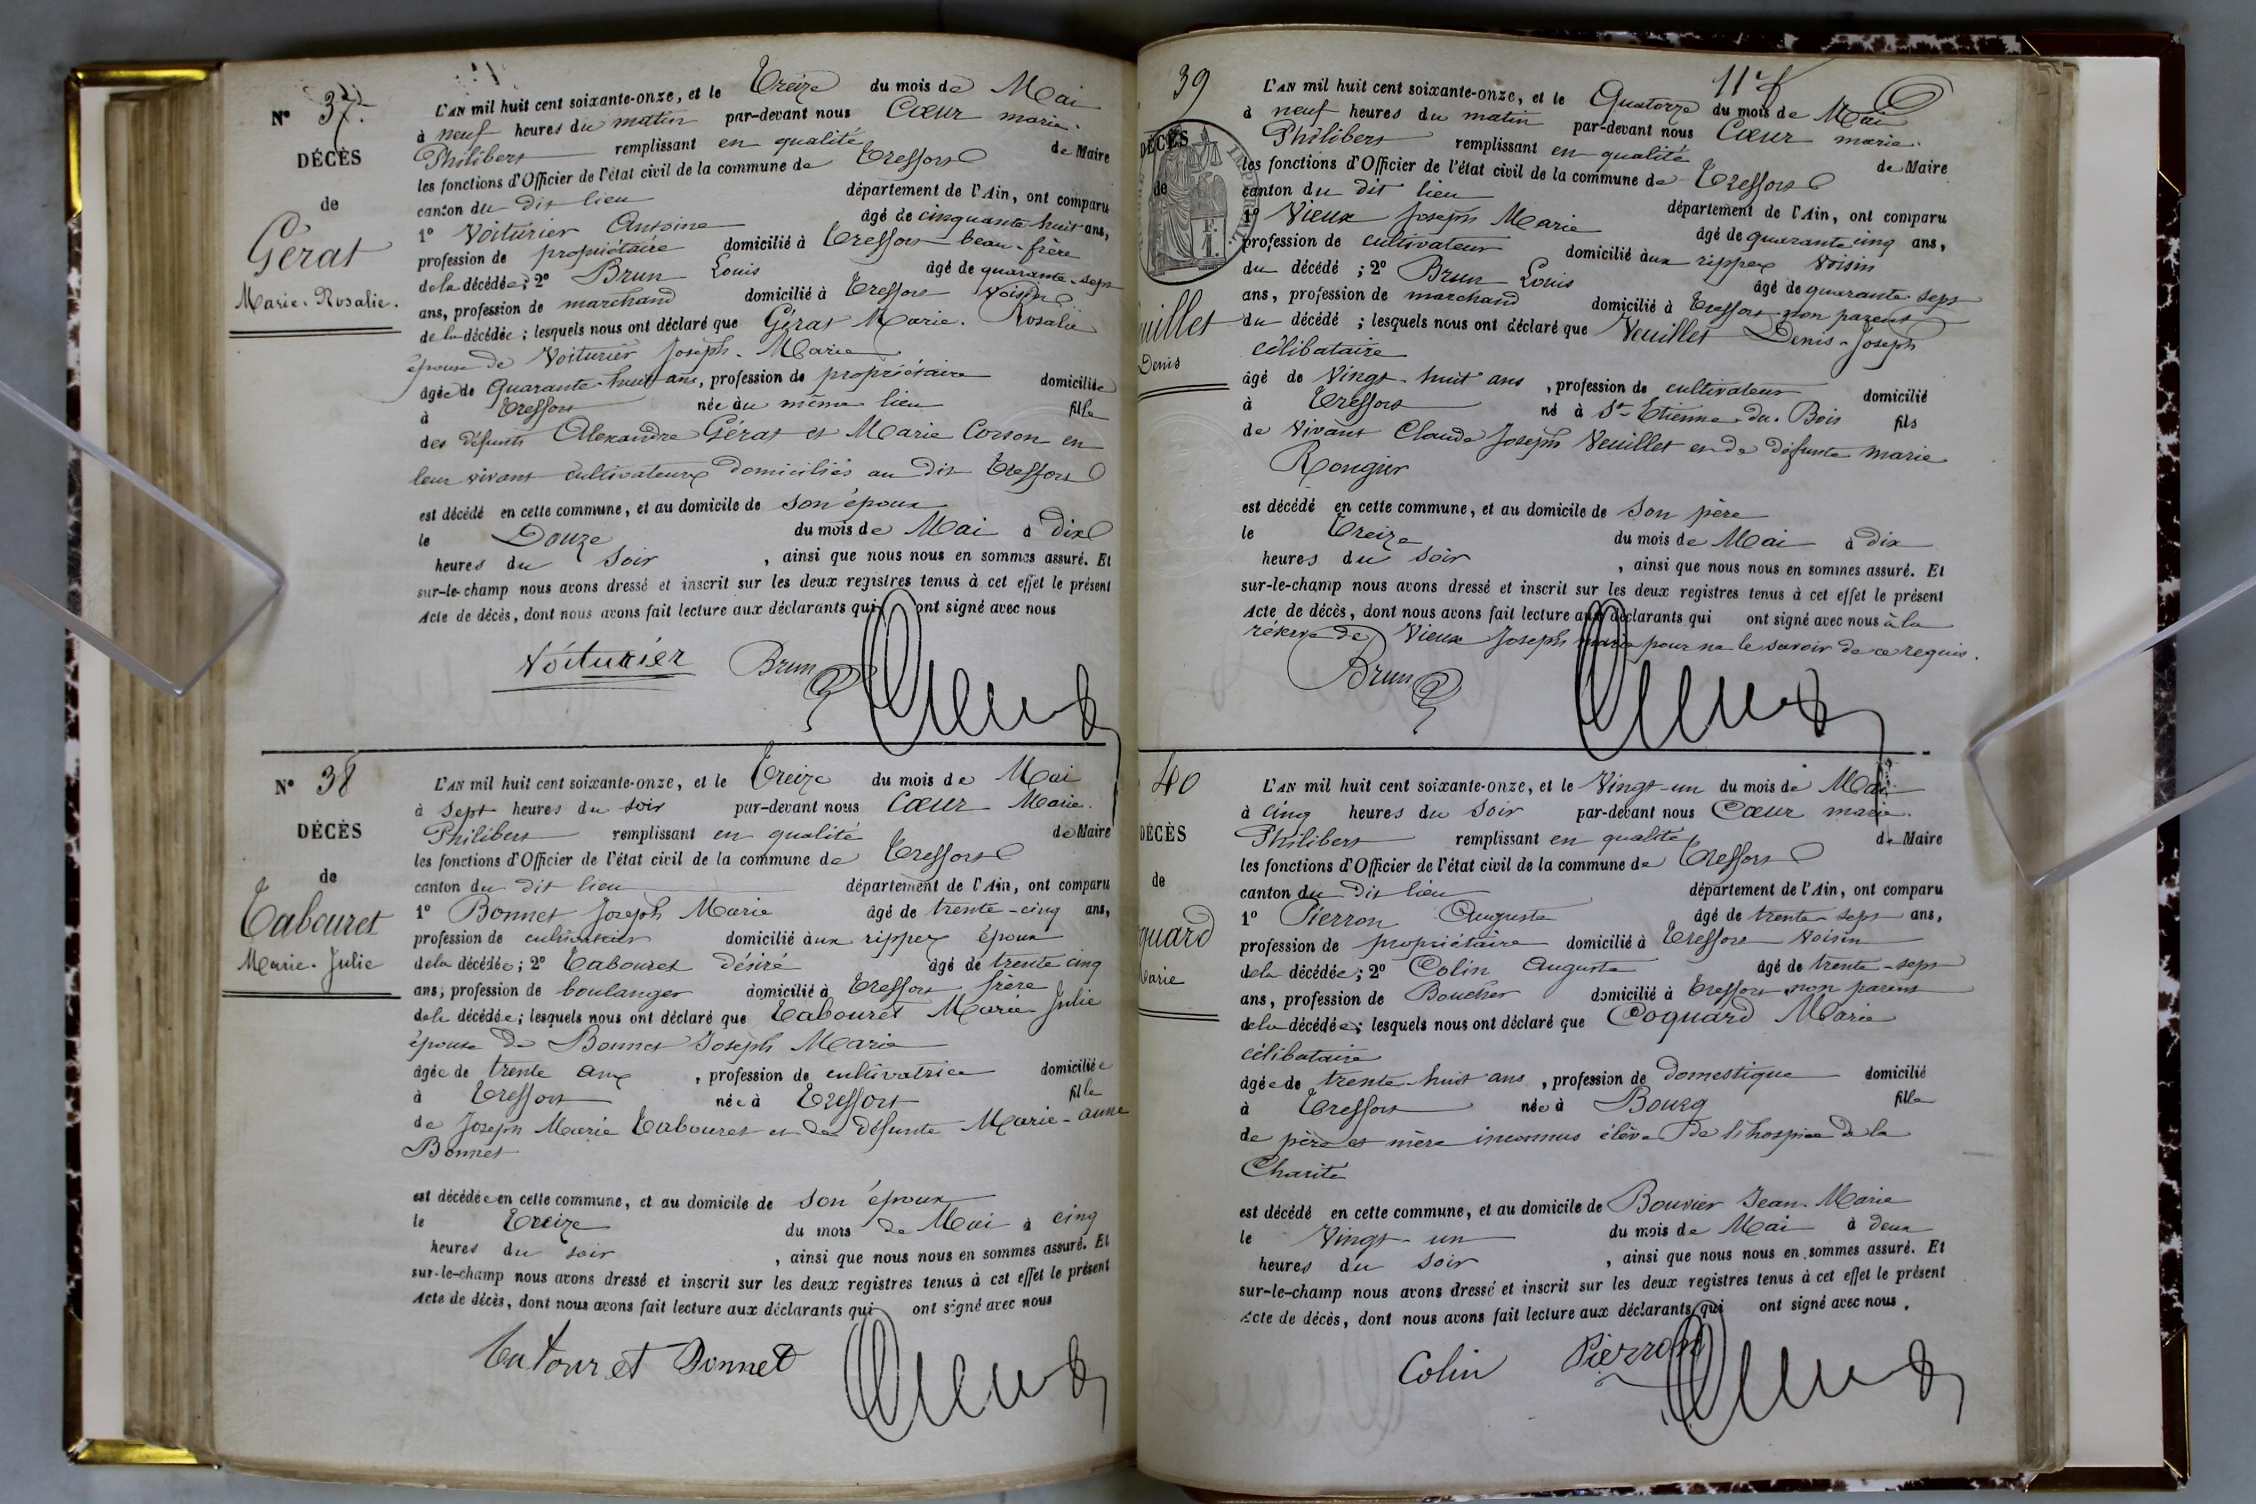 N° 37.
DÉCÈS
de
Gérat
Marie-Rosalie.
L'AN mil huit cent soixante-onze, et le Treize du mois de Mai
à neuf heures du matin par-devant nous Cœur marie-
Philibert remplissant en qualité de Maire
les fonctions d'Officier de l'état civil de la commune de Treffort
canton du dit lieu département de l'Ain, ont comparu
1° Voiturier Antoine âgé de cinquante huit ans,
profession de propriétaire domicilié à Treffort beau-frère
de la décédée; 2° Brun Louis âgé de quarante-sept
ans, profession de marchand domicilié à Treffort voisin
de la décédée; lesquels nous ont déclaré que Gérat Marie-Rosalie
épouse de Voiturier Joseph-Marie
âgée de quarante-huit ans, profession de propriétaire domiciliée
à Treffort née au même lieu fille
des défunts Alexandre Gérat et Marie Corson en
leur vivant cultivateurs domiciliés au dit Treffort
est décédé en cette commune, et au domicile de son époux
le Douze du mois de Mai à dix
heures du soir, ainsi que nous nous en sommes assuré. Et
sur-le-champ nous avons dressé et inscrit sur les deux registres tenus à cet effet le présent
Acte de décès, dont nous avons fait lecture aux déclarants qui ont signé avec nous
Voiturier Brun
N° 38
DÉCÈS
de
Tabouret
Marie-Julie
L'AN mil huit cent soixante-onze, et le Treize du mois de Mai
à sept heures du soir par-devant nous Cœur Marie-
Philibert remplissant en qualité de Maire
les fonctions d'Officier de l'état civil de la commune de Treffort
canton du dit lieu département de l'Ain, ont comparu
1° Bonnet Joseph Marie âgé de trente-cinq ans,
profession de cultivateur domicilié aux rippes époux
de la décédée; 2° Tabouret désiré âgé de trente cinq
ans, profession de boulanger domicilié à Treffort frère
de la décédée; lesquels nous ont déclaré que Tabouret Marie Julie
épouse de Bonnet Joseph Marie
âgée de trente ans, profession de cultivatrice domiciliée
à Treffort née à Treffort fille
de Joseph Marie Tabouret et de défunte Marie-anne
Bonnet
est décédée en cette commune, et au domicile de son époux
le Treize du mois de Mai à cinq
heures du soir, ainsi que nous nous en sommes assuré. Et
sur-le-champ nous avons dressé et inscrit sur les deux registres tenus à cet effet le présent
Acte de décès, dont nous avons fait lecture aux déclarants qui ont signé avec nous
Bonnet
39
DÉCÈS
de
uillet
Denis
L'AN mil huit cent soixante-onze, et le Quatorze du mois de Mai
à neuf heures du matin par-devant nous Cœur marie-
Philibert remplissant en qualité de Maire
les fonctions d'Officier de l'état civil de la commune de Treffort
canton du dit lieu département de l'Ain, ont comparu
1° Vieux Joseph Marie âgé de quarante cinq ans,
profession de cultivateur domicilié aux rippes voisin
du décédé; 2° Brun Louis âgé de quarante sept
ans, profession de marchand domicilié à Treffort non parent
du décédé; lesquels nous ont déclaré que Veuillet Denis-Joseph
célibataire
âgé de Vingt-huit ans, profession de cultivateur domicilié
à Treffort né à St-Etienne-du-Bois fils
de vivant Claude Joseph Veuillet et de défunte marie
est décédé en cette commune, et au domicile de son père
le Treize du mois de Mai à dix
heures du soir, ainsi que nous nous en sommes assuré. Et
sur-le-champ nous avons dressé et inscrit sur les deux registres tenus à cet effet le présent
Acte de décès, dont nous avons fait lecture aux déclarants qui ont signé avec nous à la
réserve de Vieux Joseph marie pour ne le savoir de ce requis.
Brun
40
DÉCÈS
de
quard
Marie
L'AN mil huit cent soixante-onze, et le Vingt-un du mois de Mai
à cinq heures du soir par-devant nous Cœur marie-
Philibert remplissant en qualité de Maire
les fonctions d'Officier de l'état civil de la commune de Treffort
canton du dit lieu département de l'Ain, ont comparu
1° Pierron Auguste âgé de trente-sept ans,
profession de propriétaire domicilié à Treffort voisin
de la décédée; 2° Colin Auguste âgé de trente-sept
ans, profession de Boucher domicilié à Treffort non parent
de la décédée; lesquels nous ont déclaré que Coquard Marie
célibataire
âgée de trente-huit ans, profession de domestique domicilié
à Treffort née à Bourg fille
de père et mère inconnus élève de l'hospice de la
Charité
est décédé en cette commune, et au domicile de Bouvier Jean-Marie
le Vingt-un du mois de Mai à deux
heures du soir, ainsi que nous nous en sommes assuré. Et
sur-le-champ nous avons dressé et inscrit sur les deux registres tenus à cet effet le présent
Acte de décès, dont nous avons fait lecture aux déclarants qui ont signé avec nous.
Colin Pierron